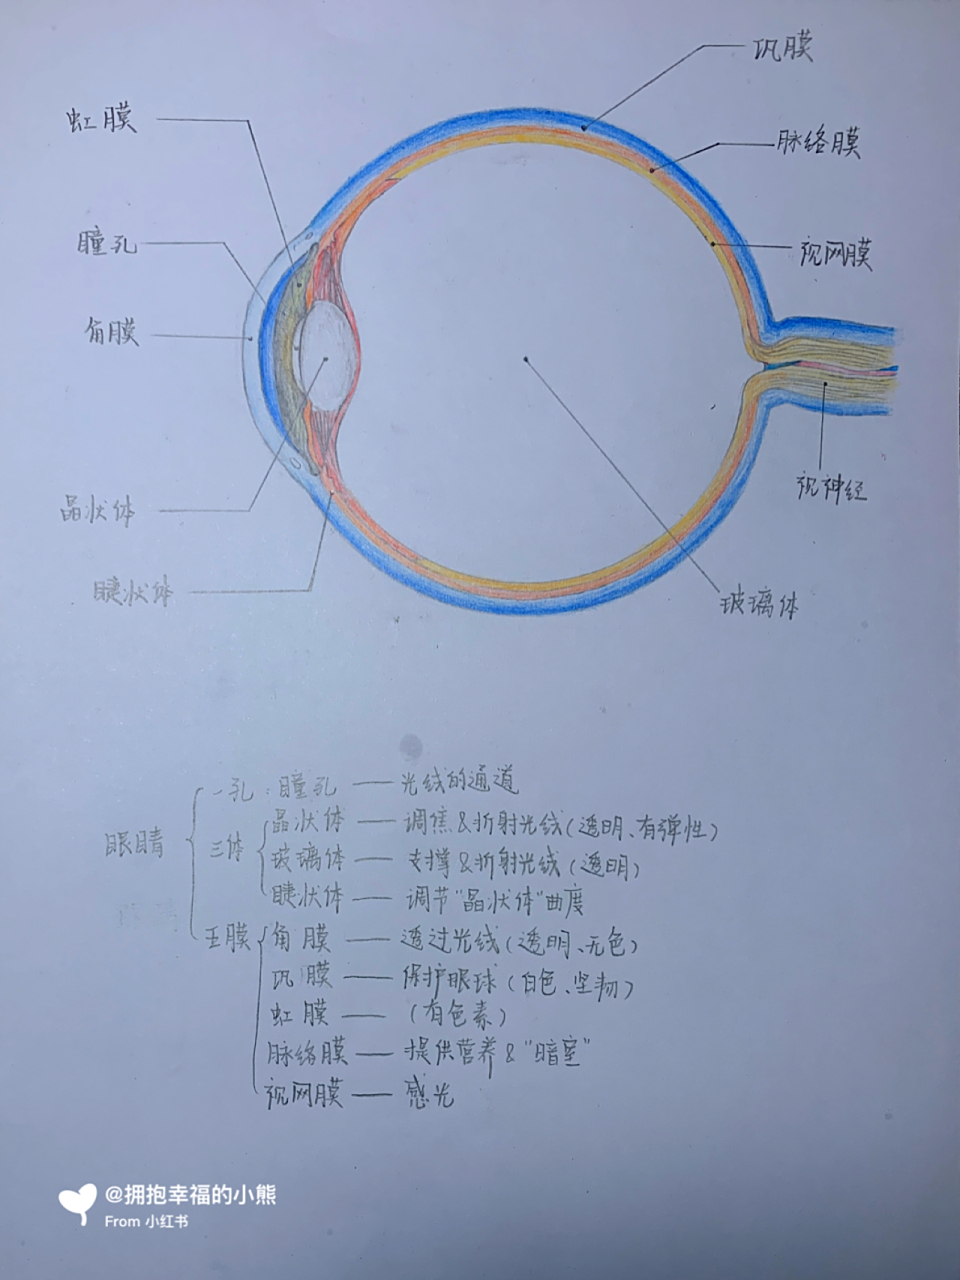 巩膜
虹膜
脉络膜
瞳孔
视网膜
角膜
视神经
晶状体
睫状体
玻璃体
眼睛
一孔:瞳孔 — 光线的通道
三体
晶状体 — 调焦&折射光线(透明、有弹性)
玻璃体 — 支撑&折射光线(透明)
睫状体 — 调节"晶状体"曲度
五膜
角膜 — 透过光线(透明、无色)
巩膜 — 保护眼球(白色、坚韧)
虹膜 — (有色素)
脉络膜 — 提供营养&"暗室"
视网膜 — 感光
@拥抱幸福的小熊
From 小红书